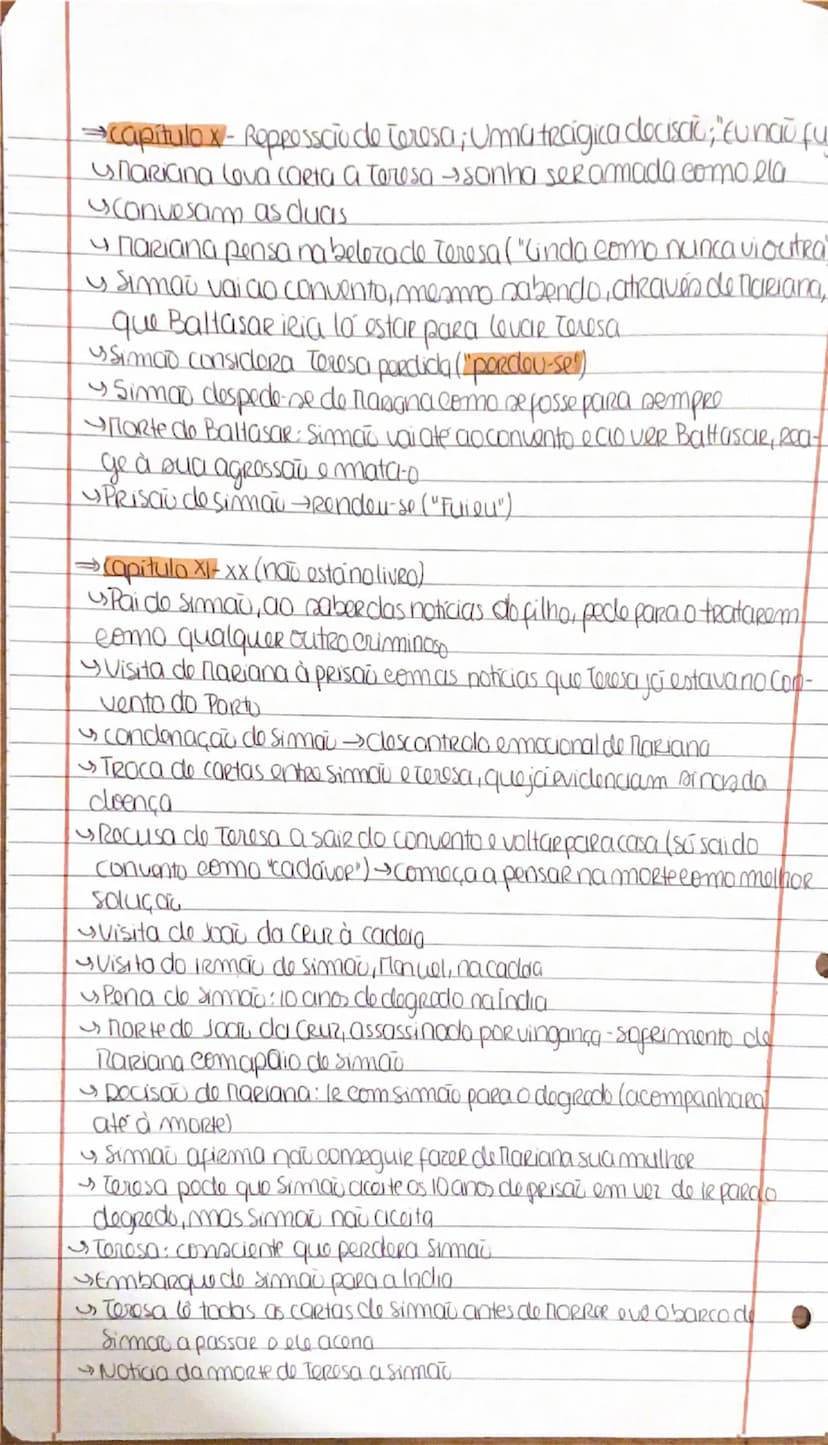 ⇒Capítulo X - Repressão de Teresa; Uma trágica decisão; "Eu não fu
↳Mariana leva carta a Teresa → sonha ser amada como ela
↳Convesam as duas
↳Mariana pensa na beleza de Teresa ("Linda como nunca vi outra"
↳Simão vai ao convento, mesmo sabendo, através de Mariana,
que Baltasar iria lá estar para levar Teresa
↳Simão considera Teresa perdida ("perdeu-se")
↳Simão despede-se de Mariana como se fosse para sempre
↳Morte do Baltasar: Simão vai até ao convento e ao ver Baltasar, rea-
ge à sua agressão e mata-o
↳Prisão de Simão → rendeu-se ("Fui eu")
⇒Capítulo XI - XX (não está no livro)
↳Pai do Simão, ao saber das notícias do filho, pede para o tratarem
como qualquer outro criminoso
↳Visita de Mariana à prisão com as notícias que Teresa já estava no Con-
vento do Porto
↳Condenação de Simão → descontrolo emocional de Mariana
↳Troca de cartas entre Simão e Teresa, que já evidenciam sinais da
doença
↳Recusa de Teresa a sair do convento e voltar para casa (só sai do
convento como "cadáver") → começa a pensar na morte como melhor
solução
↳Visita de João da Cruz à cadeia
↳Visita do irmão de Simão, Manuel, na cadeia
↳Pena de Simão: 10 anos de degredo na Índia
↳Morte de João da Cruz, assassinado por vingança - sofrimento de
Mariana com apoio de Simão
↳Decisão de Mariana: Ir com Simão para o degredo (acompanhará
até à morte)
↳Simão afirma não conseguir fazer de Mariana sua mulher
↳Teresa pede que Simão aceite os 10 anos de prisão em vez de ir para o
degredo, mas Simão não aceita
↳Teresa: consciente que perdera Simão
↳Embarque de Simão para a Índia
↳Teresa lê todas as cartas de Simão antes de morrer e vê o barco de
Simão a passar e ele acena
↳Notícia da morte de Teresa a Simão